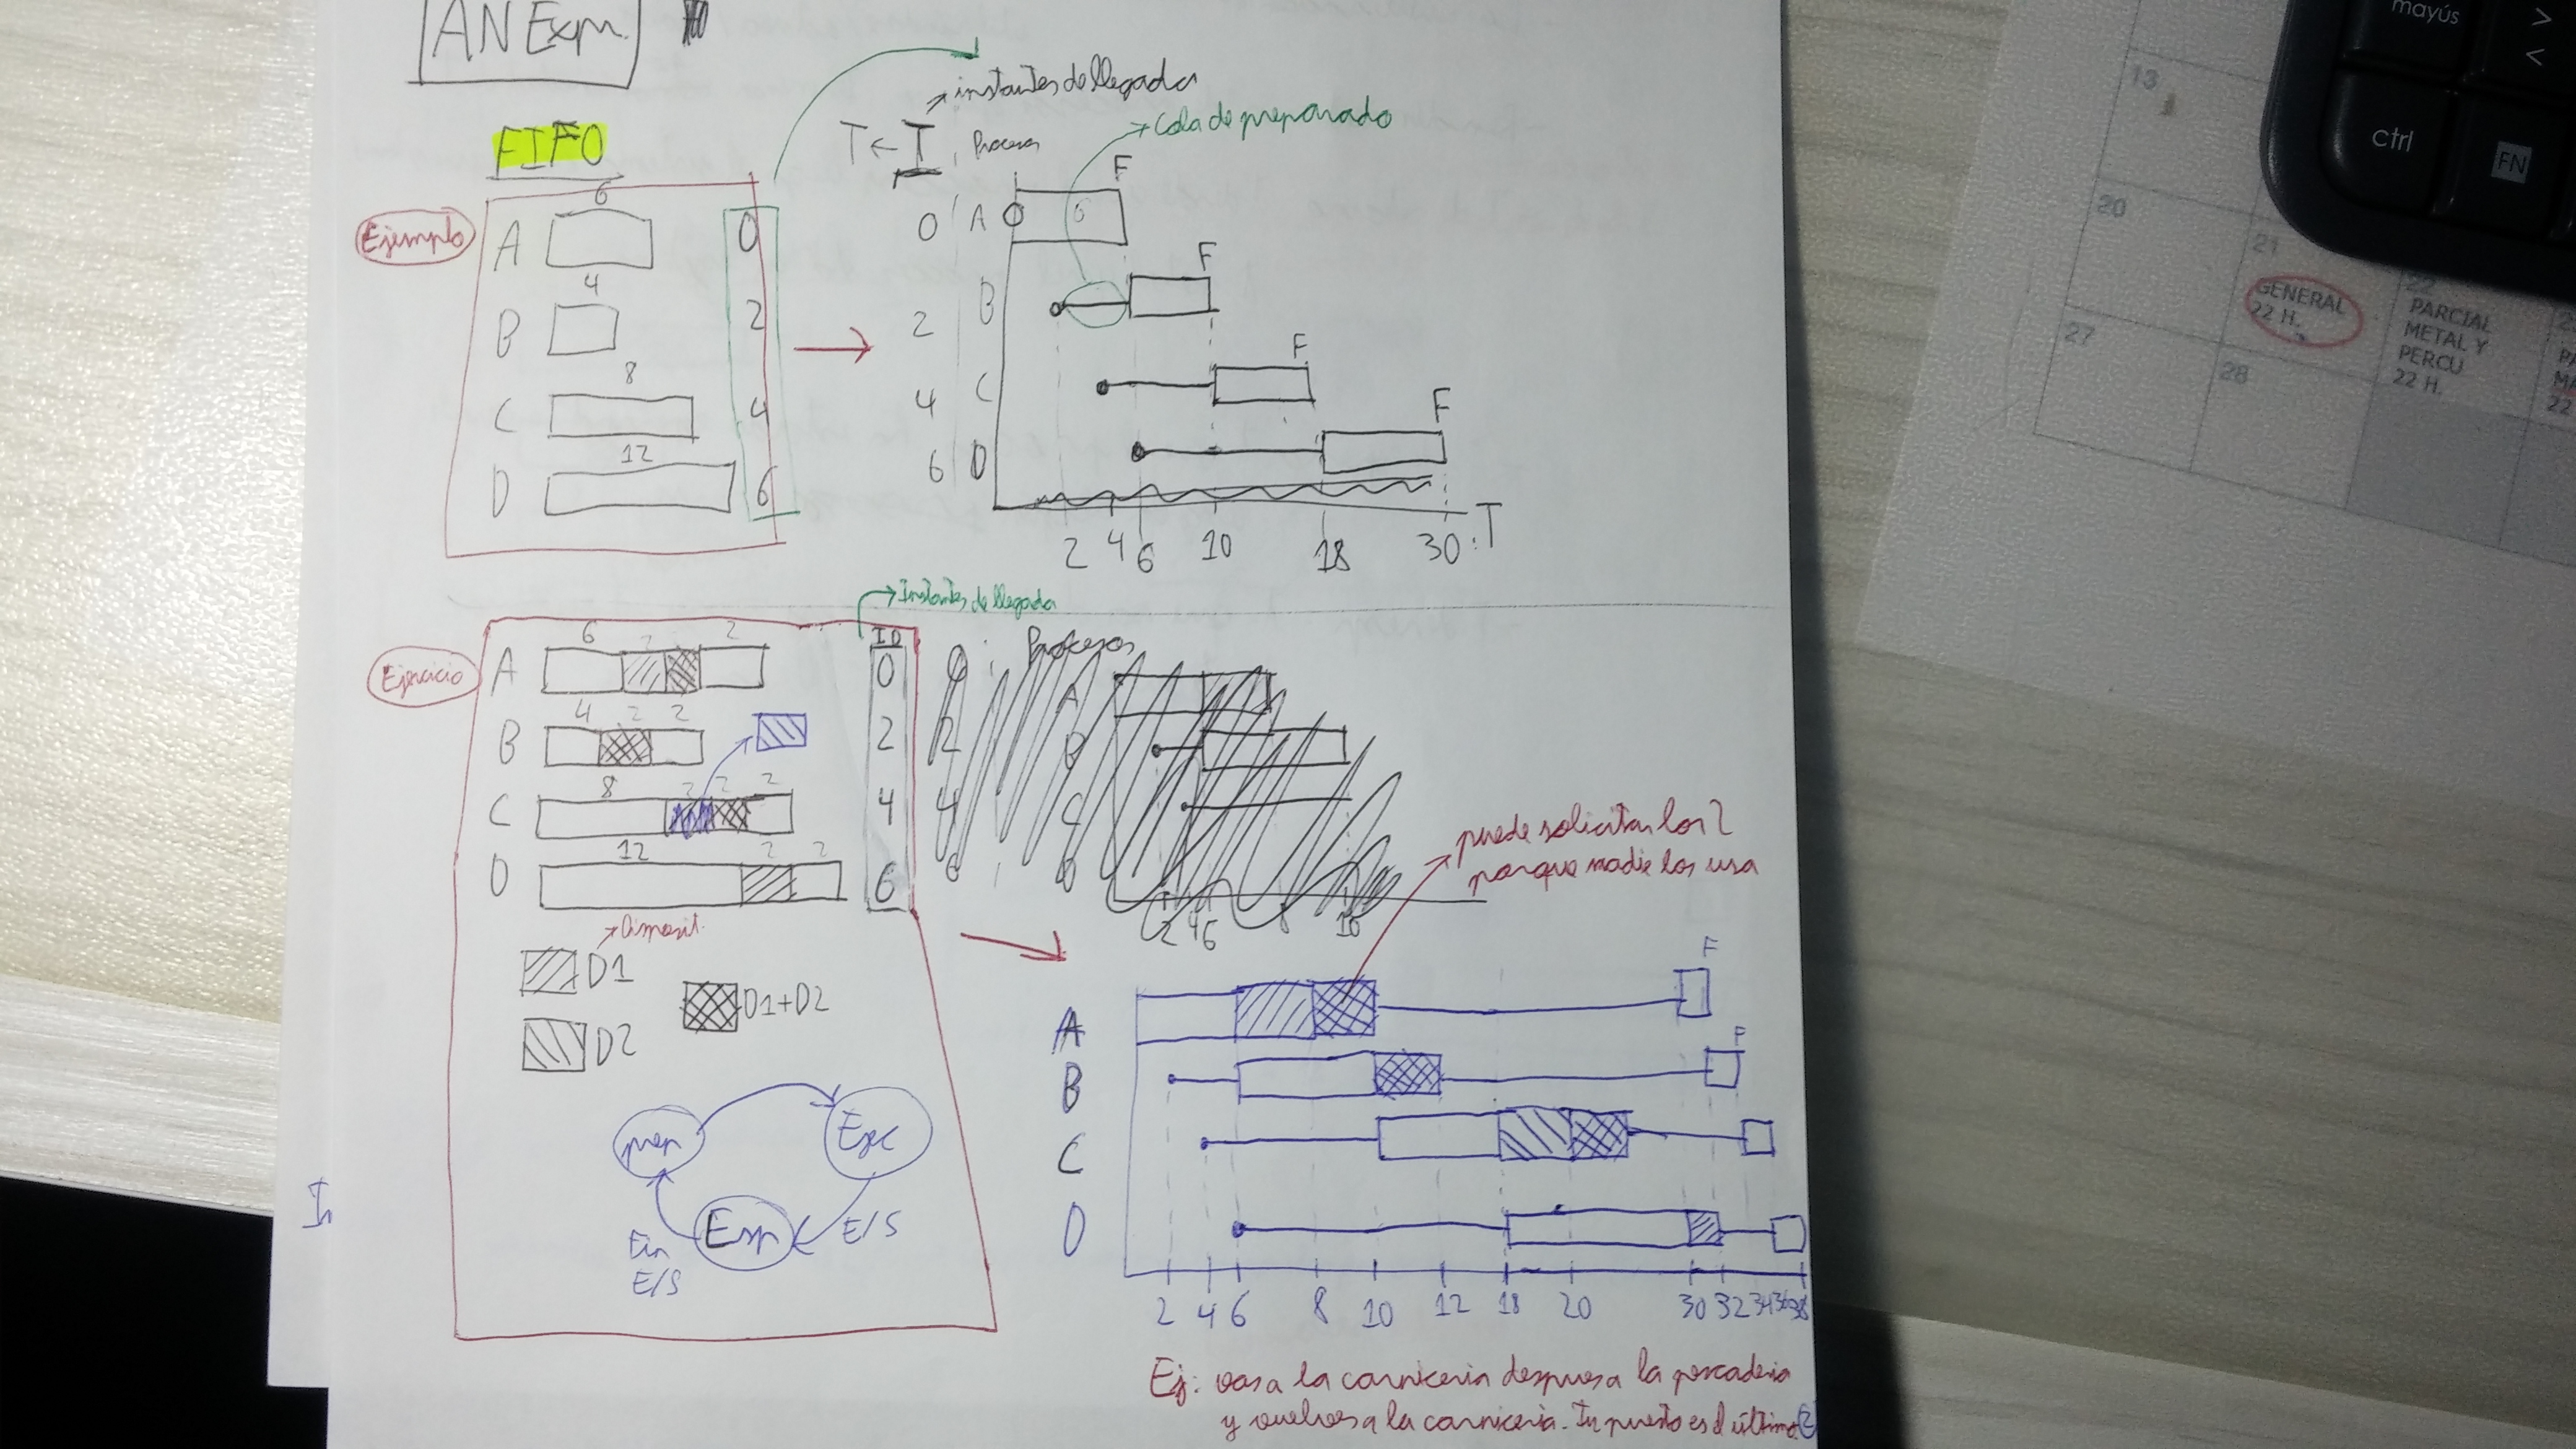 AN Exp.
FIFO
Ejemplo
A 6 0
B 4 2
C 8 4
D 12 6
instantes de llegada
T ← I Procesos
cola de preparado
0 A 6 F
2 B F
4 C F
6 D F
2 4 6 10 18 30 : T
Instantes de llegada
Ejercicio
A 6 2 2 0
B 4 2 2 2
C 8 2 2 2 4
D 12 2 2 6
D1
D2
D1+D2
prep
Ejec
Esp
E/S
Fin
E/S
Procesos
puede solicitar los 2
porque nadie los usa
A F
B F
C
D
2 4 6 8 10 12 18 20 30 32 34 36 38
Ej: vas a la carniceria despues a la pescaderia
y vuelves a la carniceria. Tu puesto es el último
mayús
ctrl
FN
>
<
13
20
21
GENERAL
22 H.
22
PARCIAL
METAL Y
PERCU
22 H.
27
28
22